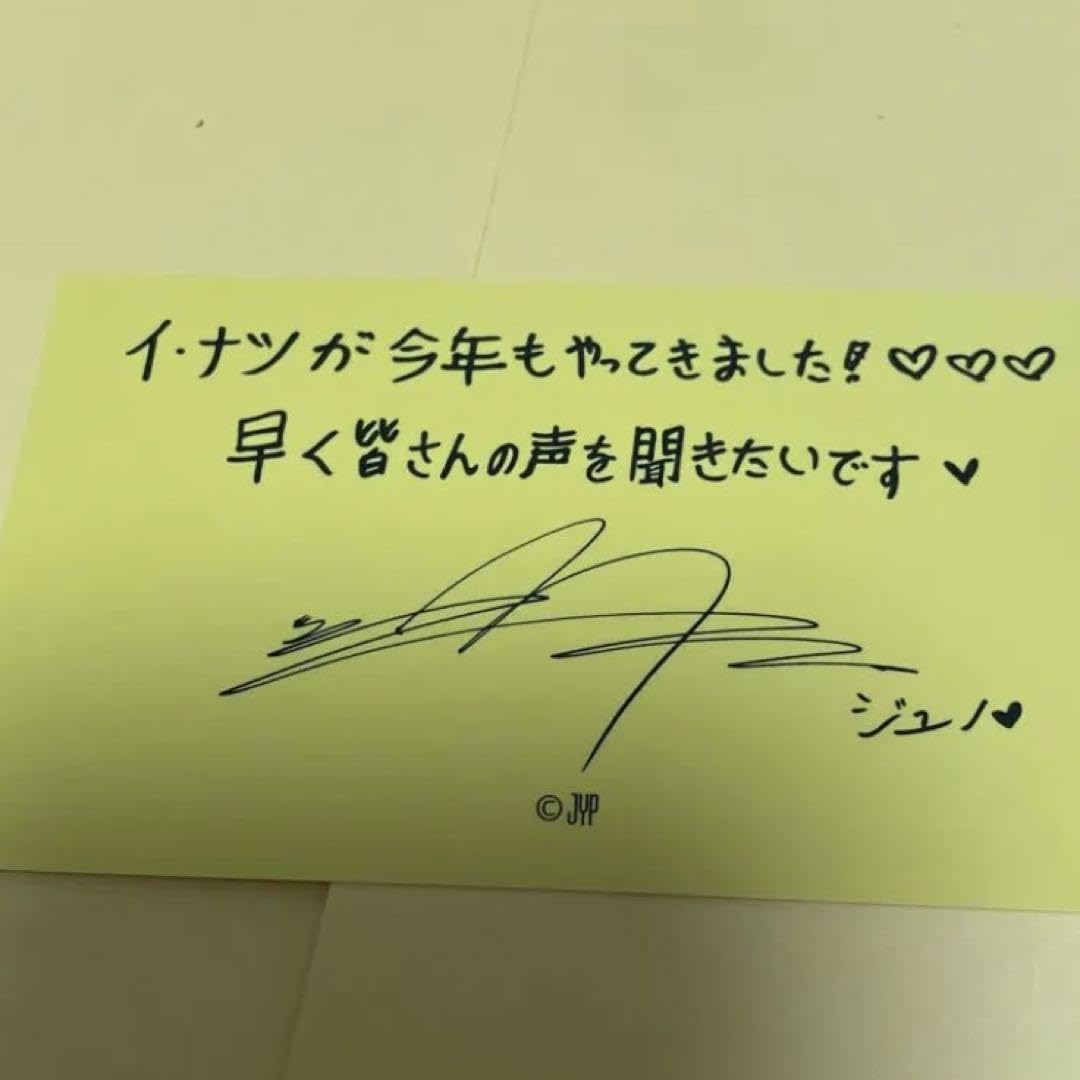 イ・ナツが今年もやってきました！♡♡♡
早く皆さんの声を聞きたいです♥
ジュノ♥
©JYP